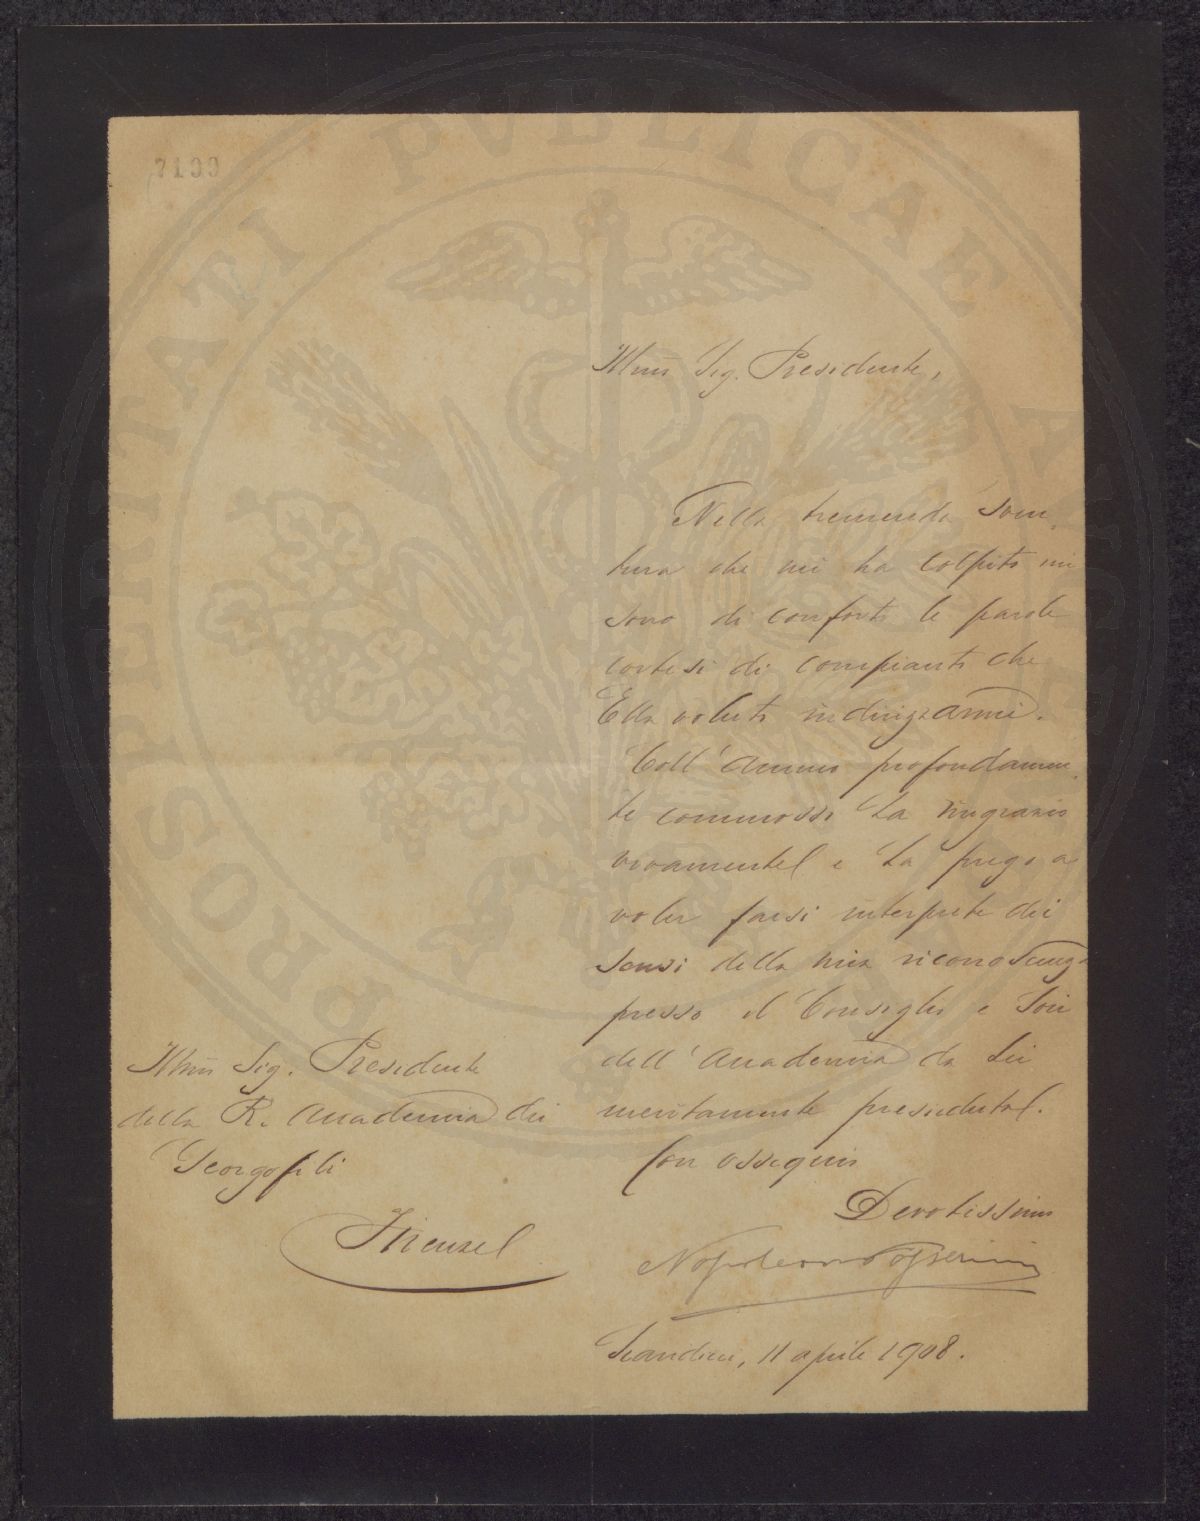 7133
PROSPERITATI PVBLICAE AVGENDAE
Illmo Sig. Presidente,
Nella tremenda sven-
tura che mi ha colpito mi
sono di conforto le parole
cortesi di compianto che
Ella voluto indirizzarmi.
Coll'animo profondamen-
te commosso La ringrazio
vivamente e La prego a
voler farsi interprete dei
sensi della mia riconoscenza
presso il Consiglio e Soci
dell'Accademia da Lei
meritamente presieduta.
Con ossequio
Devotissimo
Napoleone Passerini
Scandicci, 11 aprile 1908.
Illmo Sig. Presidente
della R. Accademia dei
Georgofili
Firenze